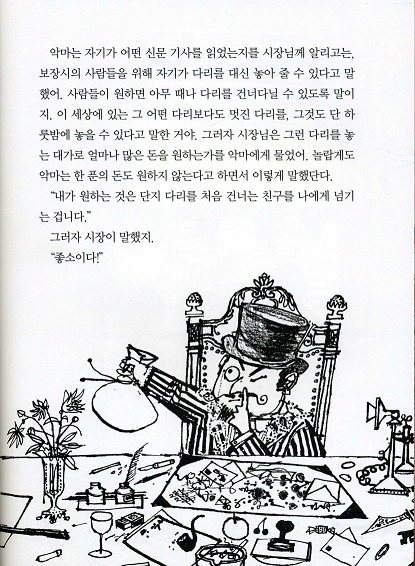 악마는 자기가 어떤 신문 기사를 읽었는지를 시장님께 알리고는,
보장시의 사람들을 위해 자기가 다리를 대신 놓아 줄 수 있다고 말
했어. 사람들이 원하면 아무 때나 다리를 건너다닐 수 있도록 말이
지. 이 세상에 있는 그 어떤 다리보다도 멋진 다리를, 그것도 단 하
룻밤에 놓을 수 있다고 말한 거야. 그러자 시장님은 그런 다리를 놓
는 대가로 얼마나 많은 돈을 원하는가를 악마에게 물었어. 놀랍게도
악마는 한 푼의 돈도 원하지 않는다고 하면서 이렇게 말했단다.
“내가 원하는 것은 단지 다리를 처음 건너는 친구를 나에게 넘기
는 겁니다.”
그러자 시장이 말했지.
“좋소이다!”